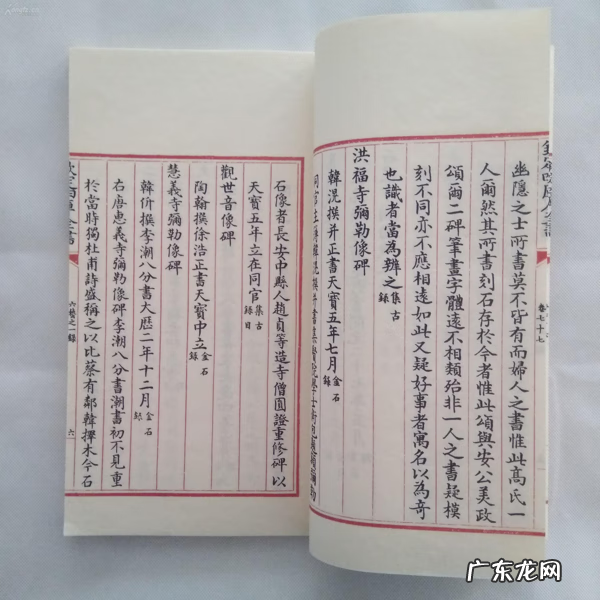 卷七十七
幽隱之士所書莫不皆有而婦人之書惟此髙氏一
人爾然其所書刻石存於今者惟此頌與安公美政
頌爾二碑筆畫字體逺不相類殆非一人之書疑模
刻不同亦不應相逺如此又疑好事者寓名以為奇
也識者當為辨之集古錄
洪福寺彌勒像碑
韓滉撰并正書天寳五年七月金石錄
石像者長安中縣人趙貞等造寺僧圓證重修碑以
天寳五年立在同官集古錄目
觀世音像碑
陶翰撰徐浩正書天寳中立金石錄
慧義寺彌勒像碑
韓价撰李潮八分書大厯二年十二月金石錄
右唐惠義寺彌勒像碑李潮八分書潮書初不見重
於當時獨杜甫詩盛稱之以比蔡有鄰韓擇木今石
六藝之一錄
六
广东龙网